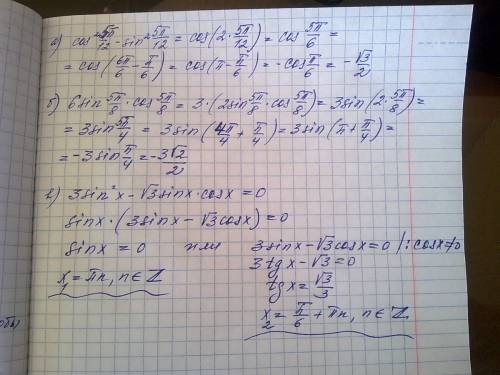 а) cos² 5π/12 - sin² 5π/12 = cos(2·5π/12) = cos 5π/6 =
= cos(6π/6 - π/6) = cos(π - π/6) = -cos π/6 = -√3/2
б) 6sin 5π/8 · cos 5π/8 = 3·(2sin 5π/8 · cos 5π/8) = 3sin(2·5π/8) =
= 3sin 5π/4 = 3sin(4π/4 + π/4) = 3sin(π + π/4) =
= -3sin π/4 = -3√2/2
в) 3sin²x - √3sinx·cosx = 0
sinx·(3sinx - √3cosx) = 0
sinx = 0 или 3sinx - √3cosx = 0 /: cosx≠0
3tgx - √3 = 0
tgx = √3/3
x₁ = πn, n∈Z
x₂ = π/6 + πn, n∈Z